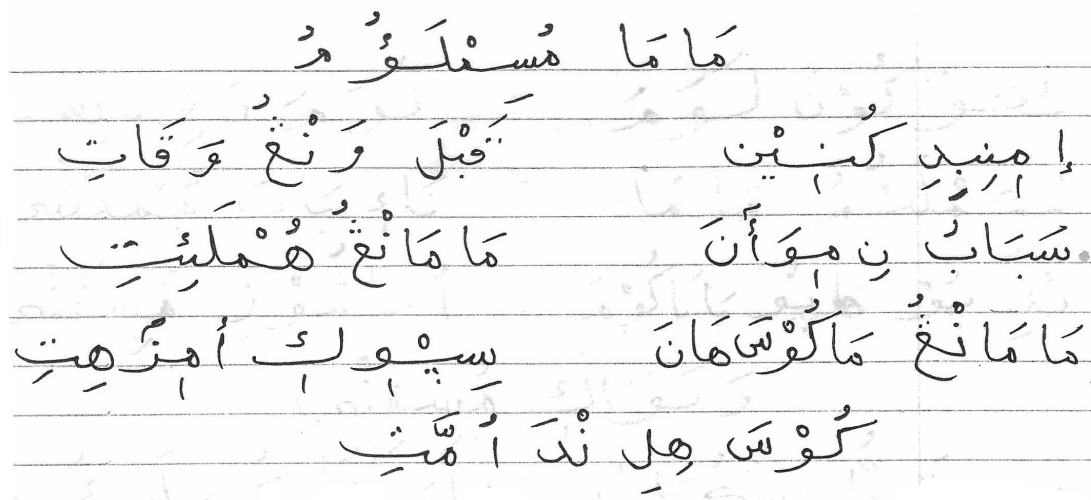 مَا مَا مُسِمْلَـؤُ مُ
إ مِنِبِدِ كُنِـيْن قَبْلَ وَنْڠُ وَقَاتِ
سَبَابُ نِ مِـوَأَنَ مَا مَانْڠُ هُمْلَـئِتِ
مَا مَانْڠُ مَاكُوْسَ هَانَ سِـيْـوِ كِ أ مِزُهِتِ
كُوْسَ هِلِ نْدَ أُ مَّتِ